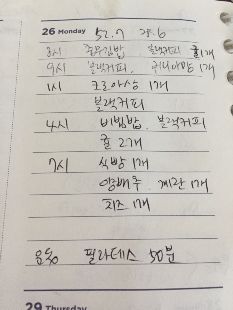 26 Monday 52.7 28.6
3시 김밥 블랙커피 귤1개
9시 블랙커피, 1개
1시 크로아상 1개
블랙커피
4시 비빔밥, 블랙커피
귤 2개
7시 식빵 1개
양배추, 계란 1개
치즈 1개
운동 필라테스 50분
29 Thursday